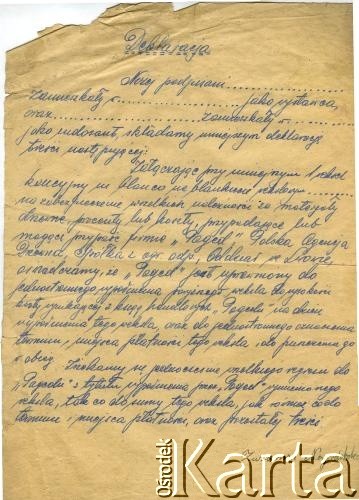 Deklaracja
Niżej podpisani
zamieszkały jako wystawca,
oraz zamieszkały
jako indosant składamy niniejszym deklarację
treści następującej:
Załączając przy niniejszym 1 weksel
kaucyjny in blanco na blankiecie
na zabezpieczenie wszelkich należności
procenty lub koszty, przypadające lub
mogące firmie "Paged" Polska Agencja
Drzewna, Spółka z ogr. odp., Oddział w
oświadczamy, że "Paged" jest upoważniony do
jednostronnego wypełnienia weksla do wysokości
kwoty wynikającej z ksiąg "Pagedu" na dzień
wypełnienia tego weksla, oraz do jednostronnego oznaczenia
terminu, miejsca płatności tego weksla i do puszczenia go
w obieg. Zrzekamy się jednocześnie wszelkiego regresu do
"Pagedu" z tytułu wypełnienia przez "Paged"
weksla, tak co do sumy tego weksla, jak co do
terminu i miejsca płatności, oraz pozostałej treści
Ośrodek
Karta